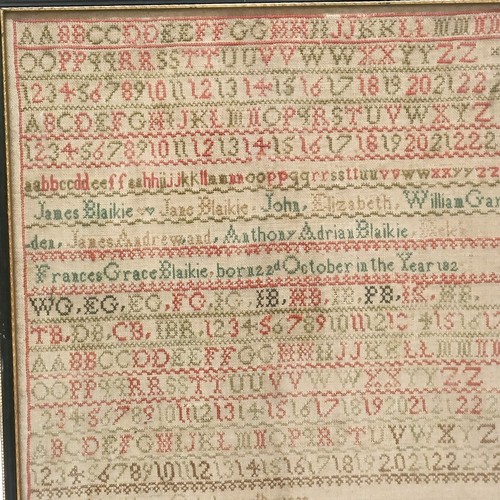 AABBCCDDEEFFGGHHIJJKKLLMMNN
OOPPqqRRSSTTUUVVWWXXYYZZ
1234567891011121314151617181920212223
ABCDEFGHIJKLMNOPqRSTUVWXYZ
12345678910111213141516171819202122
aabbccddeeffgghhiijjkkllmmnnooppqqrrssttuuvvwwxxyyzz
James Blaikie Jane Blaikie, John, Elizabeth, William Gar
den, James Andrew, and, Anthony Adrian Blaikie, Helen
Frances Grace Blaikie, born 22d October in the Year 182
WG, EG, EG, FG, IG, IB, HB, IB, PB, IK,
TB, DB, CB, IBR, 123456789101112 1415161
AABBCCDDEEFFGGHHIJJKKLLMMNN
OOPPqqRRSSTTUUVVWWXXYYZZ
12345678910111213141516171819202122
ABCDEFGHIJKLMNOPqRSTUVWXYZ
12345678910111213141516171819202122